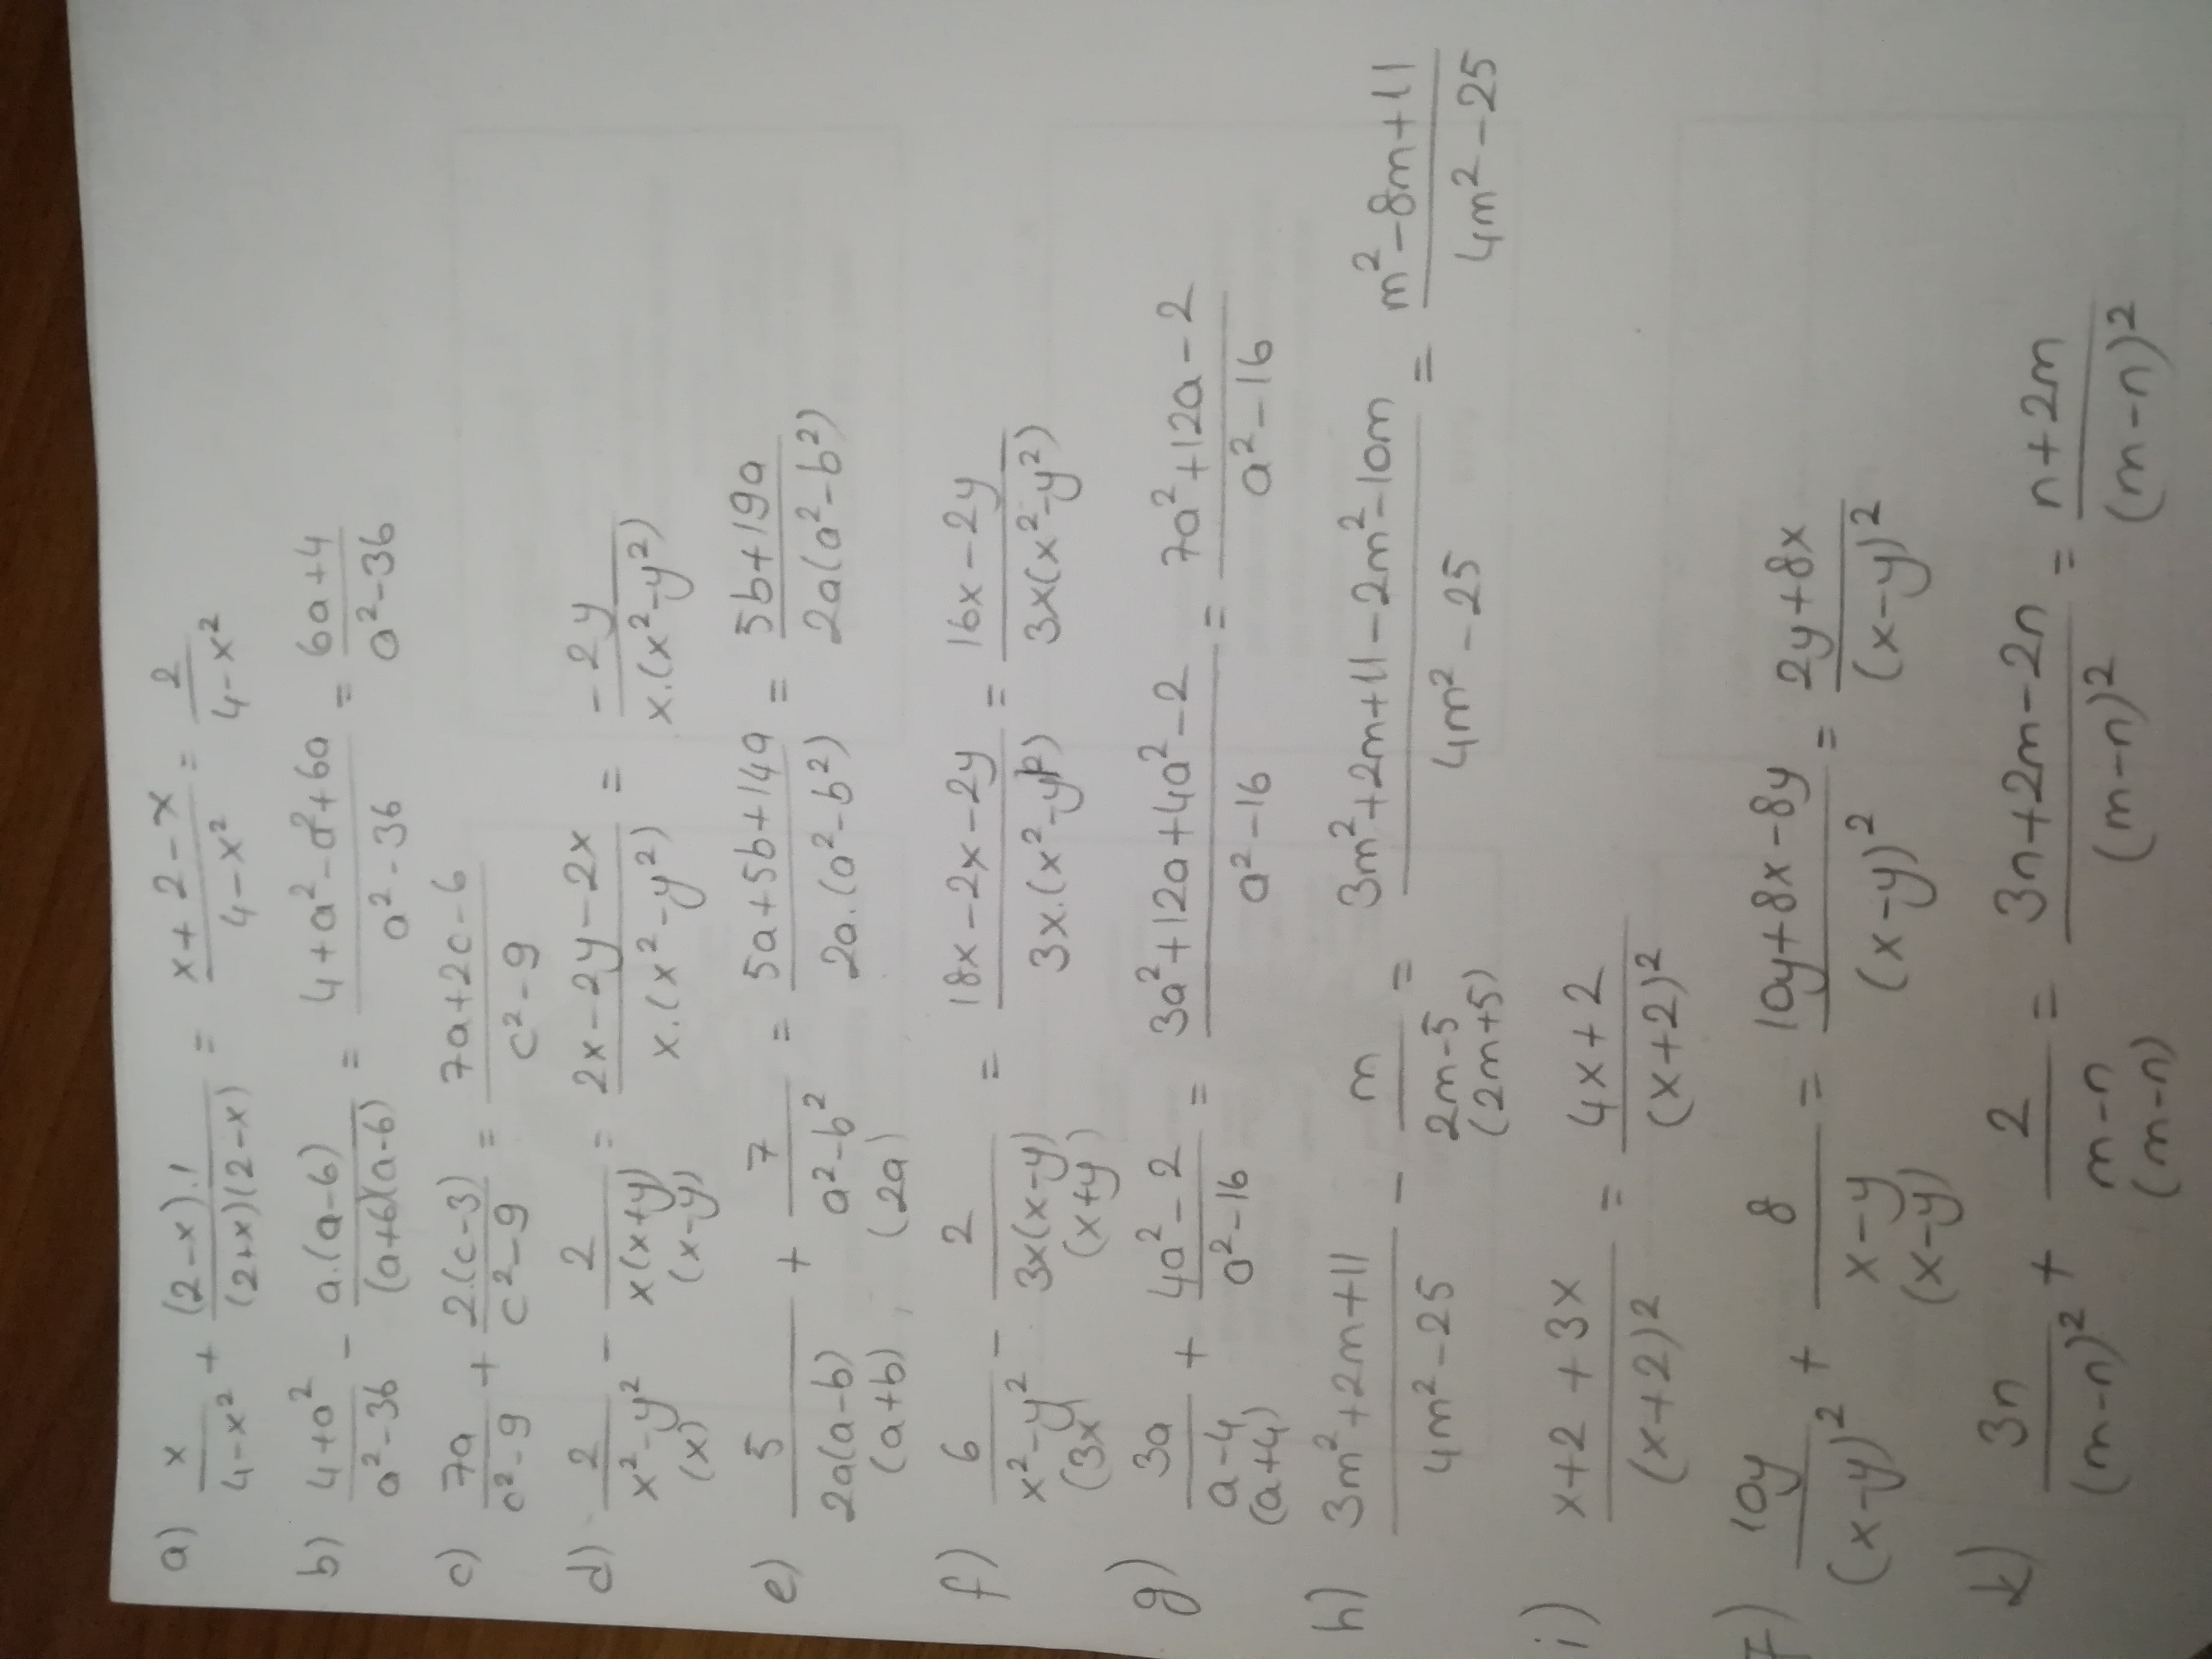 a) x/(4-x²) + (2-x).1/((2+x)(2-x)) = (x+2-x)/(4-x²) = 2/(4-x²)
b) (4+a²)/(a²-36) - a.(a-6)/((a+6)(a-6)) = (4+a²-a²+6a)/(a²-36) = (6a+4)/(a²-36)
c) 7a/(c²-9) + 2.(c-3)/(c²-9) = (7a+2c-6)/(c²-9)
d) 2/(x²-y²) - 2/(x(x+y)) = (2x-2y-2x)/(x.(x²-y²)) = -2y/(x.(x²-y²))
(x) (x-y)
e) 5/(2a(a-b)) + 7/(a²-b²) = (5a+5b+14a)/(2a.(a²-b²)) = (5b+19a)/(2a(a²-b²))
(a+b) (2a)
f) 6/(x²-y²) - 2/(3x(x-y)) = (18x-2x-2y)/(3x.(x²-y²)) = (16x-2y)/(3x(x²-y²))
(3x) (x+y)
g) 3a/(a-4) + (4a²-2)/(a²-16) = (3a²+12a+4a²-2)/(a²-16) = (7a²+12a-2)/(a²-16)
(a+4)
h) (3m²+2m+11)/(4m²-25) - m/(2m-5) = (3m²+2m+11-2m²-10m)/(4m²-25) = (m²-8m+11)/(4m²-25)
(2m+5)
i) (x+2+3x)/(x+2)² = (4x+2)/(x+2)²
10y/(x-y)² + 8/(x-y) = (10y+8x-8y)/(x-y)² = (2y+8x)/(x-y)²
(x-y)
k) 3n/(m-n)² + 2/(m-n) = (3n+2m-2n)/(m-n)² = (n+2m)/(m-n)²
(m-n)